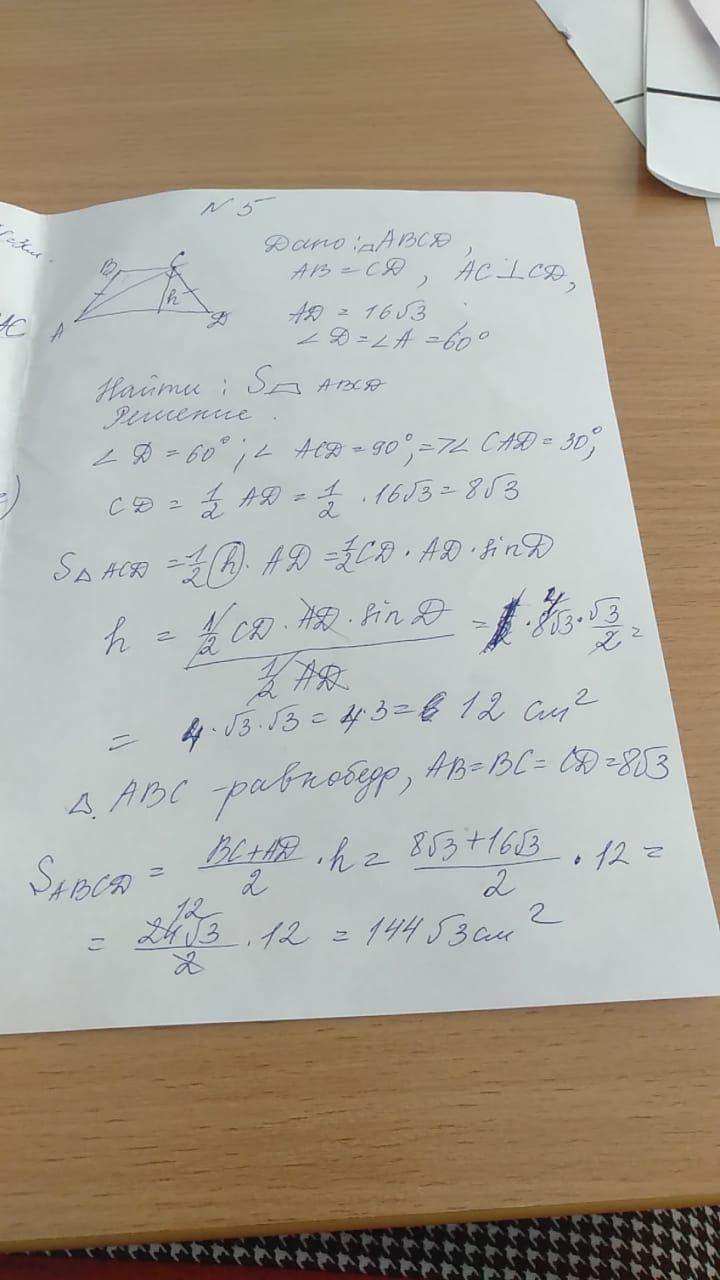 N 5
Дано: △ABCD,
AB = CD, AC ⊥ CD,
AD = 16√3;
∠D = ∠A = 60°
B C
h
A D
AC
Найти: S⏢ ABCD
Решение.
∠D = 60°; ∠ ACD = 90°, => ∠ CAD = 30°,
CD = 1/2 AD = 1/2 · 16√3 = 8√3
S△ ACD = 1/2 h · AD = 1/2 CD · AD · sin D
h = (1/2 CD · AD · sin D)/(1/2 AD) = · 4 8√3 · √3/2 =
= 4 · √3 · √3 = 4·3 = 12 см²
△ ABC - равнобедр, AB = BC = CD = 8√3
S ABCD = (BC + AD)/2 · h = (8√3 + 16√3)/2 · 12 =
= 12 24√3/2 · 12 = 144√3 см²